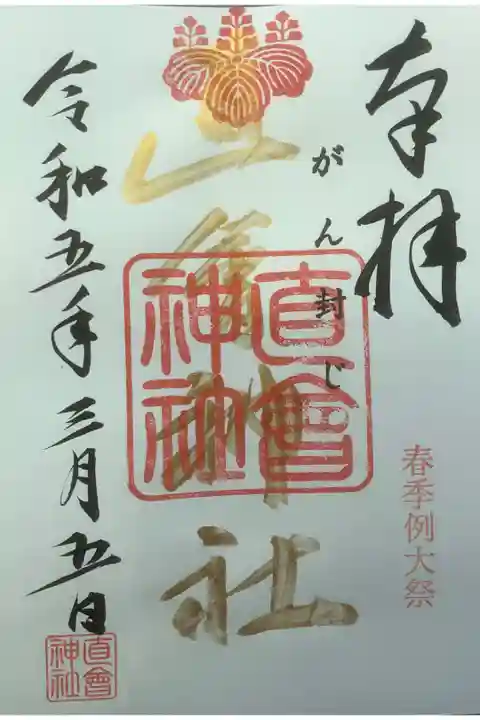 奉拝
春季例大祭
がん封じ
直會神社
直會神社
令和五年三月五日
直會
神社